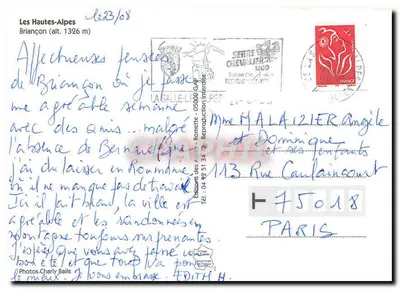 Les Hautes-Alpes
Briançon (alt. 1326 m)
le 23/08
Affectueuses pensées
de Briançon où je passe
une agréable semaine
avec des amis... malgré
l'absence de
j'ai dû laisser en Roumanie
où il ne manque pas de travail
Ici il fait beau, la ville est
agréable et les randonnées en
montagne toujours surprenantes.
J'espère que vous avez passé un
bon été et que tout va pour
le mieux. Je vous embrasse. EDITH H.
Photos Charly Baile
SERRE
CHEVALIER
LA SALLE LES ALPES
Reproduction interdite
05000 GAP
Tél. : 04 92 51 34
Mme MALAIZIER Angèle
et Dominique
et ses enfants
113 Rue Caulaincourt
75018
PARIS